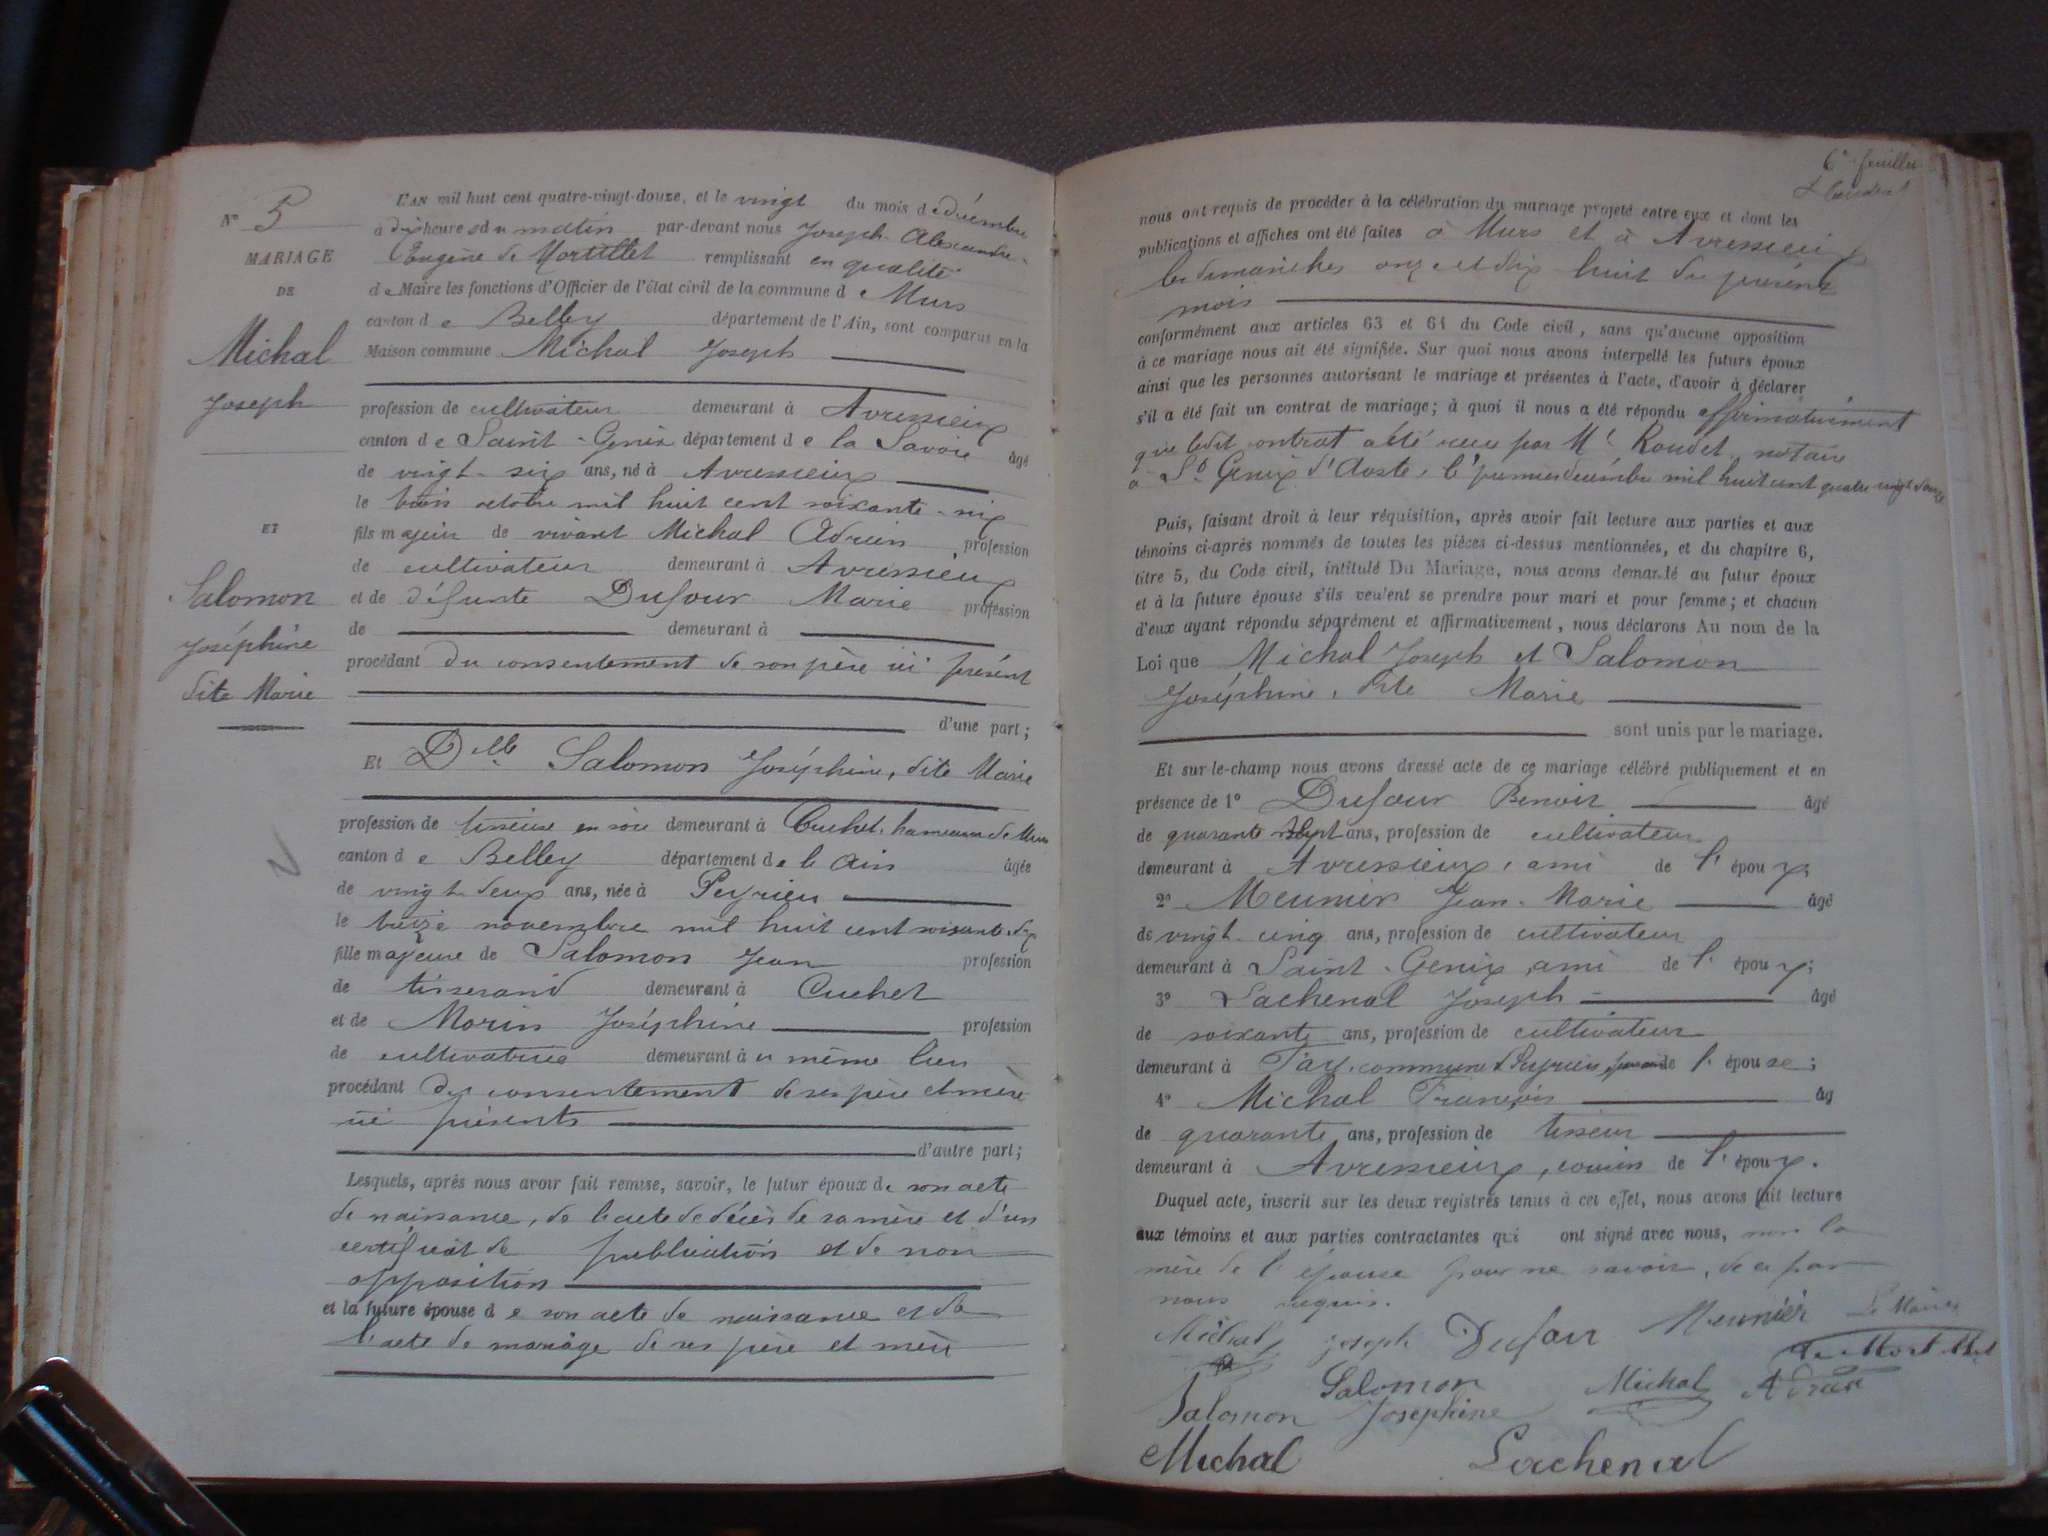 N° 5
MARIAGE
DE
Michal
Joseph
ET
Salomon
Joséphine
dite Marie
L'AN mil huit cent quatre-vingt-douze, et le vingt du mois de décembre
à dix heures du matin par-devant nous Joseph Alexandre
Eugène de Mortillet remplissant en qualité
de Maire les fonctions d'Officier de l'état civil de la commune de Murs
canton de Belley département de l'Ain, sont comparus en la
Maison commune Michal Joseph
profession de cultivateur demeurant à Avressieux
canton de Saint-Genix département de la Savoie âgé
de vingt-six ans, né à Avressieux
le trois octobre mil huit cent soixante-six
fils majeur de vivant Michal Adrien profession
de cultivateur demeurant à Avressieux
et de défunte Dufour Marie profession
de demeurant à
procédant du consentement de son père ici présent
d'une part ;
Et Delle Salomon Joséphine, dite Marie
profession de tisseuse en soie demeurant à Cuchet, hameau de Murs
canton de Belley département de l'Ain âgée
de vingt-deux ans, née à Peyrieu
le treize novembre mil huit cent soixante-dix
fille majeure de Salomon Jean profession
de tisserand demeurant à Cuchet
et de Morin Joséphine profession
de cultivatrice demeurant à u même lieu
procédant du consentement de ses père et mère
ici présents
d'autre part ;
Lesquels, après nous avoir fait remise, savoir, le futur époux de son acte
de naissance, de l'acte de décès de sa mère et d'un
certificat de publication et de non
opposition
et la future épouse de son acte de naissance et de
l'acte de mariage de ses père et mère
6e feuillet
nous ont requis de procéder à la célébration du mariage projeté entre eux et dont les
publications et affiches ont été faites à Murs et à Avressieux
les dimanches onze et dix-huit du présent
mois
conformément aux articles 63 et 64 du Code civil, sans qu'aucune opposition
à ce mariage nous ait été signifiée. Sur quoi nous avons interpellé les futurs époux
ainsi que les personnes autorisant le mariage et présentes à l'acte, d'avoir à déclarer
s'il a été fait un contrat de mariage ; à quoi il nous a été répondu affirmativement
que ledit contrat a été reçu par Me Roudet notaire
à St Genix d'Aoste, le premier décembre mil huit cent quatre vingt douze
Puis, faisant droit à leur réquisition, après avoir fait lecture aux parties et aux
témoins ci-après nommés de toutes les pièces ci-dessus mentionnées, et du chapitre 6,
titre 5, du Code civil, intitulé Du Mariage, nous avons demandé au futur époux
et à la future épouse s'ils veulent se prendre pour mari et pour femme ; et chacun
d'eux ayant répondu séparément et affirmativement, nous déclarons Au nom de la
Loi que Michal Joseph et Salomon
Joséphine, dite Marie
sont unis par le mariage.
Et sur-le-champ nous avons dressé acte de ce mariage célébré publiquement et en
présence de 1° Dufour Benoit âgé
de quarante sept ans, profession de cultivateur
demeurant à Avressieux, ami de l'époux ;
2° Meunier Jean-Marie âgé
de vingt-cinq ans, profession de cultivateur
demeurant à Saint-Genix, ami de l'époux ;
3° Lachenal Joseph âgé
de soixante ans, profession de cultivateur
demeurant à Fay, commune d Peyrieu, de l'épouse ;
4° Michal François âg
de quarante ans, profession de tisseur
demeurant à Avressieux, cousin de l'époux.
Duquel acte, inscrit sur les deux registres tenus à cet effet, nous avons fait lecture
aux témoins et aux parties contractantes qui ont signé avec nous, non la
mère de l'épouse pour ne savoir, de ce par
nous requis.
Michal Joseph Dufour Meunier Le Maire
de Mortillet
Salomon Salomon Joséphine Michal Adrien
Michal Lachenal